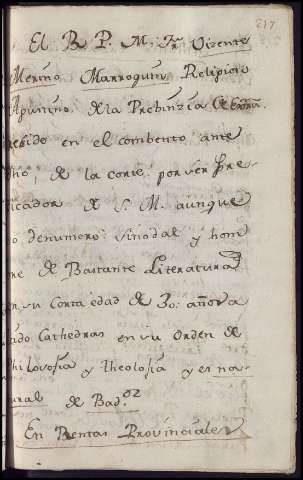 217
El R P. M. Fr. Vizente
Merino Marroquin Religioso
Agustino de la Probinzia de
reside en el combento ante
de la corte, por ser Pre-
dicador de S. M. aunque
no de numero: sinodal y hom
bre de Bastante Literatura
en su Corta edad de 30: años a
Cathedras en su Orden de
Philosofia y theolofia y es na-
tural de Bad.oz
En Rentas Provinciales